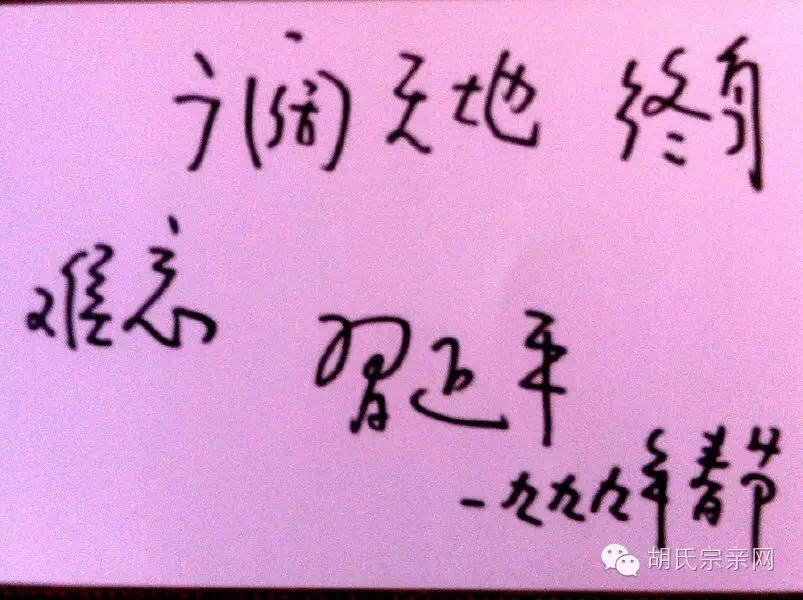 广阔天地 终身
难忘
習近平
一九九九年春节
胡氏宗亲网